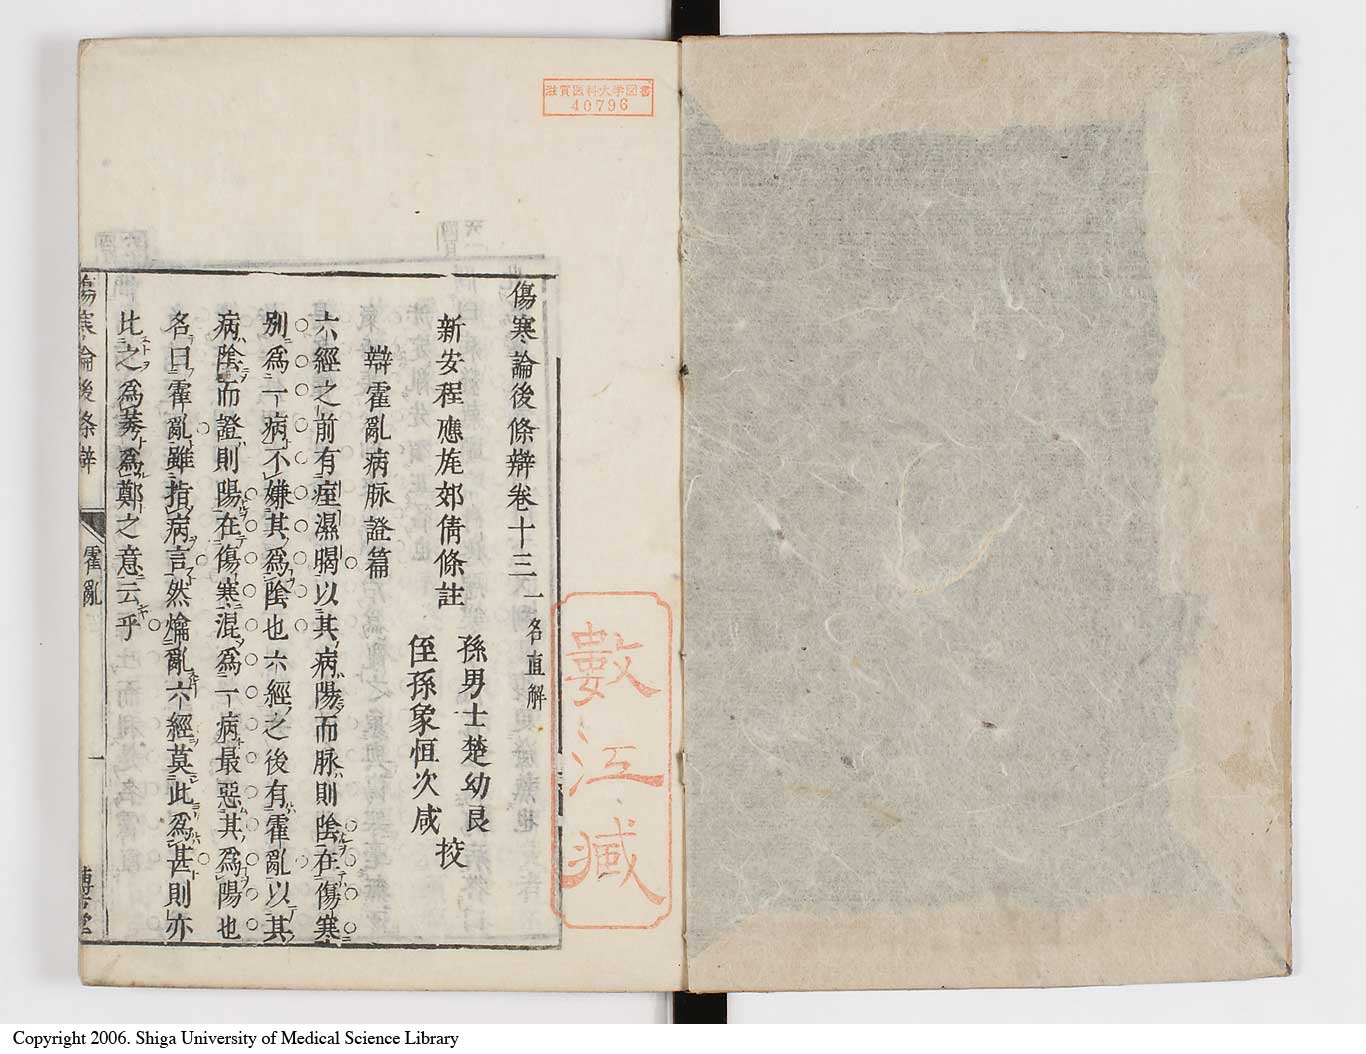 滋賀医科大学図書
40796
傷寒論後條辯卷十三 一名直解
新安程應旄郊倩條註
孫男士楚幼良
侄孫象恒次咸
挍
辯霍亂病脉證篇
六經之前有痓濕暍以其病陽而脉則陰在傷寒
別爲一病不嫌其爲陰也六經之後有霍亂以其
病陰而證則陽在傷寒混爲一病最惡其爲陽也
名曰霍亂雖指病言然爚亂六經莫此爲甚則亦
比之爲莠爲鄭之意云乎
傷寒論後條辯
霍亂
一
數江藏
Copyright 2006. Shiga University of Medical Science Library